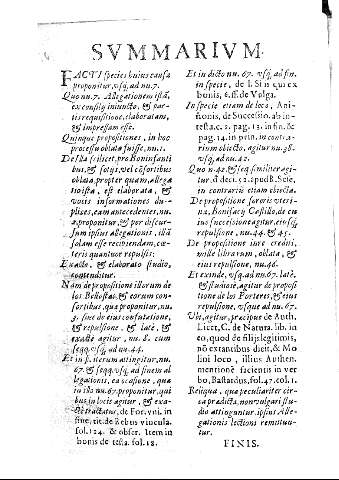 SVMMARIVM.
FACTI species huius causa
proponitur, vsq; ad nu. 7.
Quo nu. 7. Allegationem istã,
ex consilijs iniuncto, & par-
tis requisitione, elaboratam,
& impressam esse.
Quinque propositiones, in hoc
processu oblata fuisse, nu. 1.
De illa scilicet, pro Boninfanti
bus, & sotijs, vel cõfortibus
oblata, propter quam, allega
tio ista, est elaborata, &
varijs informationes du-
plices, eam antecedentes, nu.
2. proponitur, & per discur-
sum ipsius allegationis, illã
solam esse recipiendam, cæ-
teris quantuor repulsis:
Exacte, & elaborato studio,
contenditur.
Nam de propositione illorum de
los Bellostas, & eorum con-
sortibus, quæ proponitur, nu.
3. sine de eius confutatione,
& repulsione, & latè, &
exactè agitur, nu. 8. cum
seqq. vsq; ad nu. 44.
Et in p. iterum attingitur, nu.
67. & seqq. vsq; ad finem al
legationis, ea occasione, quia
in illo nu. 67. proponitur, qui
bus in locis agitur, & exa-
ctè tractatur, de For. vni. in
fine, tit. de Rebus vincula.
fol. 124. & obser. Item in
bonis de testa. fol. 18.
Et in dicto nu. 67. vsq; ad fin.
in specie, de l. Si n qui ex
bonis, 6. ff. de Vulga.
In specie etiam de loco, Ani-
ñonis, de Successio. ab in-
testa. c. 2. pag. 13. in fin. &
pag. 14. in prin. in contra-
rium obiecto, agitur nu. 38.
vsq; ad nu. 42.
Quo n. 42. & seq. similiter agi-
tur, d. decis. 12. apud R. Sese,
in contrarium etiam obiecta.
De propositione sororis vteri-
næ, Bonifacij Castillo, de cu
ius successione agitur, eiusq;
repulsione, nu. 44. & 45.
De propositione iure crediti,
mille librarum, oblata, &
eius repulsione, nu. 46.
Et exinde, vsq; ad nu. 67. latè,
& studiosè, agitur de proposi
tione de los Porteres, & eius
repulsione, vsque ad nu. 67.
Vbi, agitur, præcipuè de Auth.
Licet, C. de Natura. lib. in
eo, quod de filijs legitimis,
nõ extantibus dicit, & Mo
lini loco, illius Authen.
mentionẽ facientis in ver
bo, Bastardus, fol. 47. col. 1.
Reliqua, quæ peculiariter cir-
ca prædicta, non vulgari stu-
dio attinguntur, ipsius Alle-
gationis lectioni remittun-
tur.
FINIS.